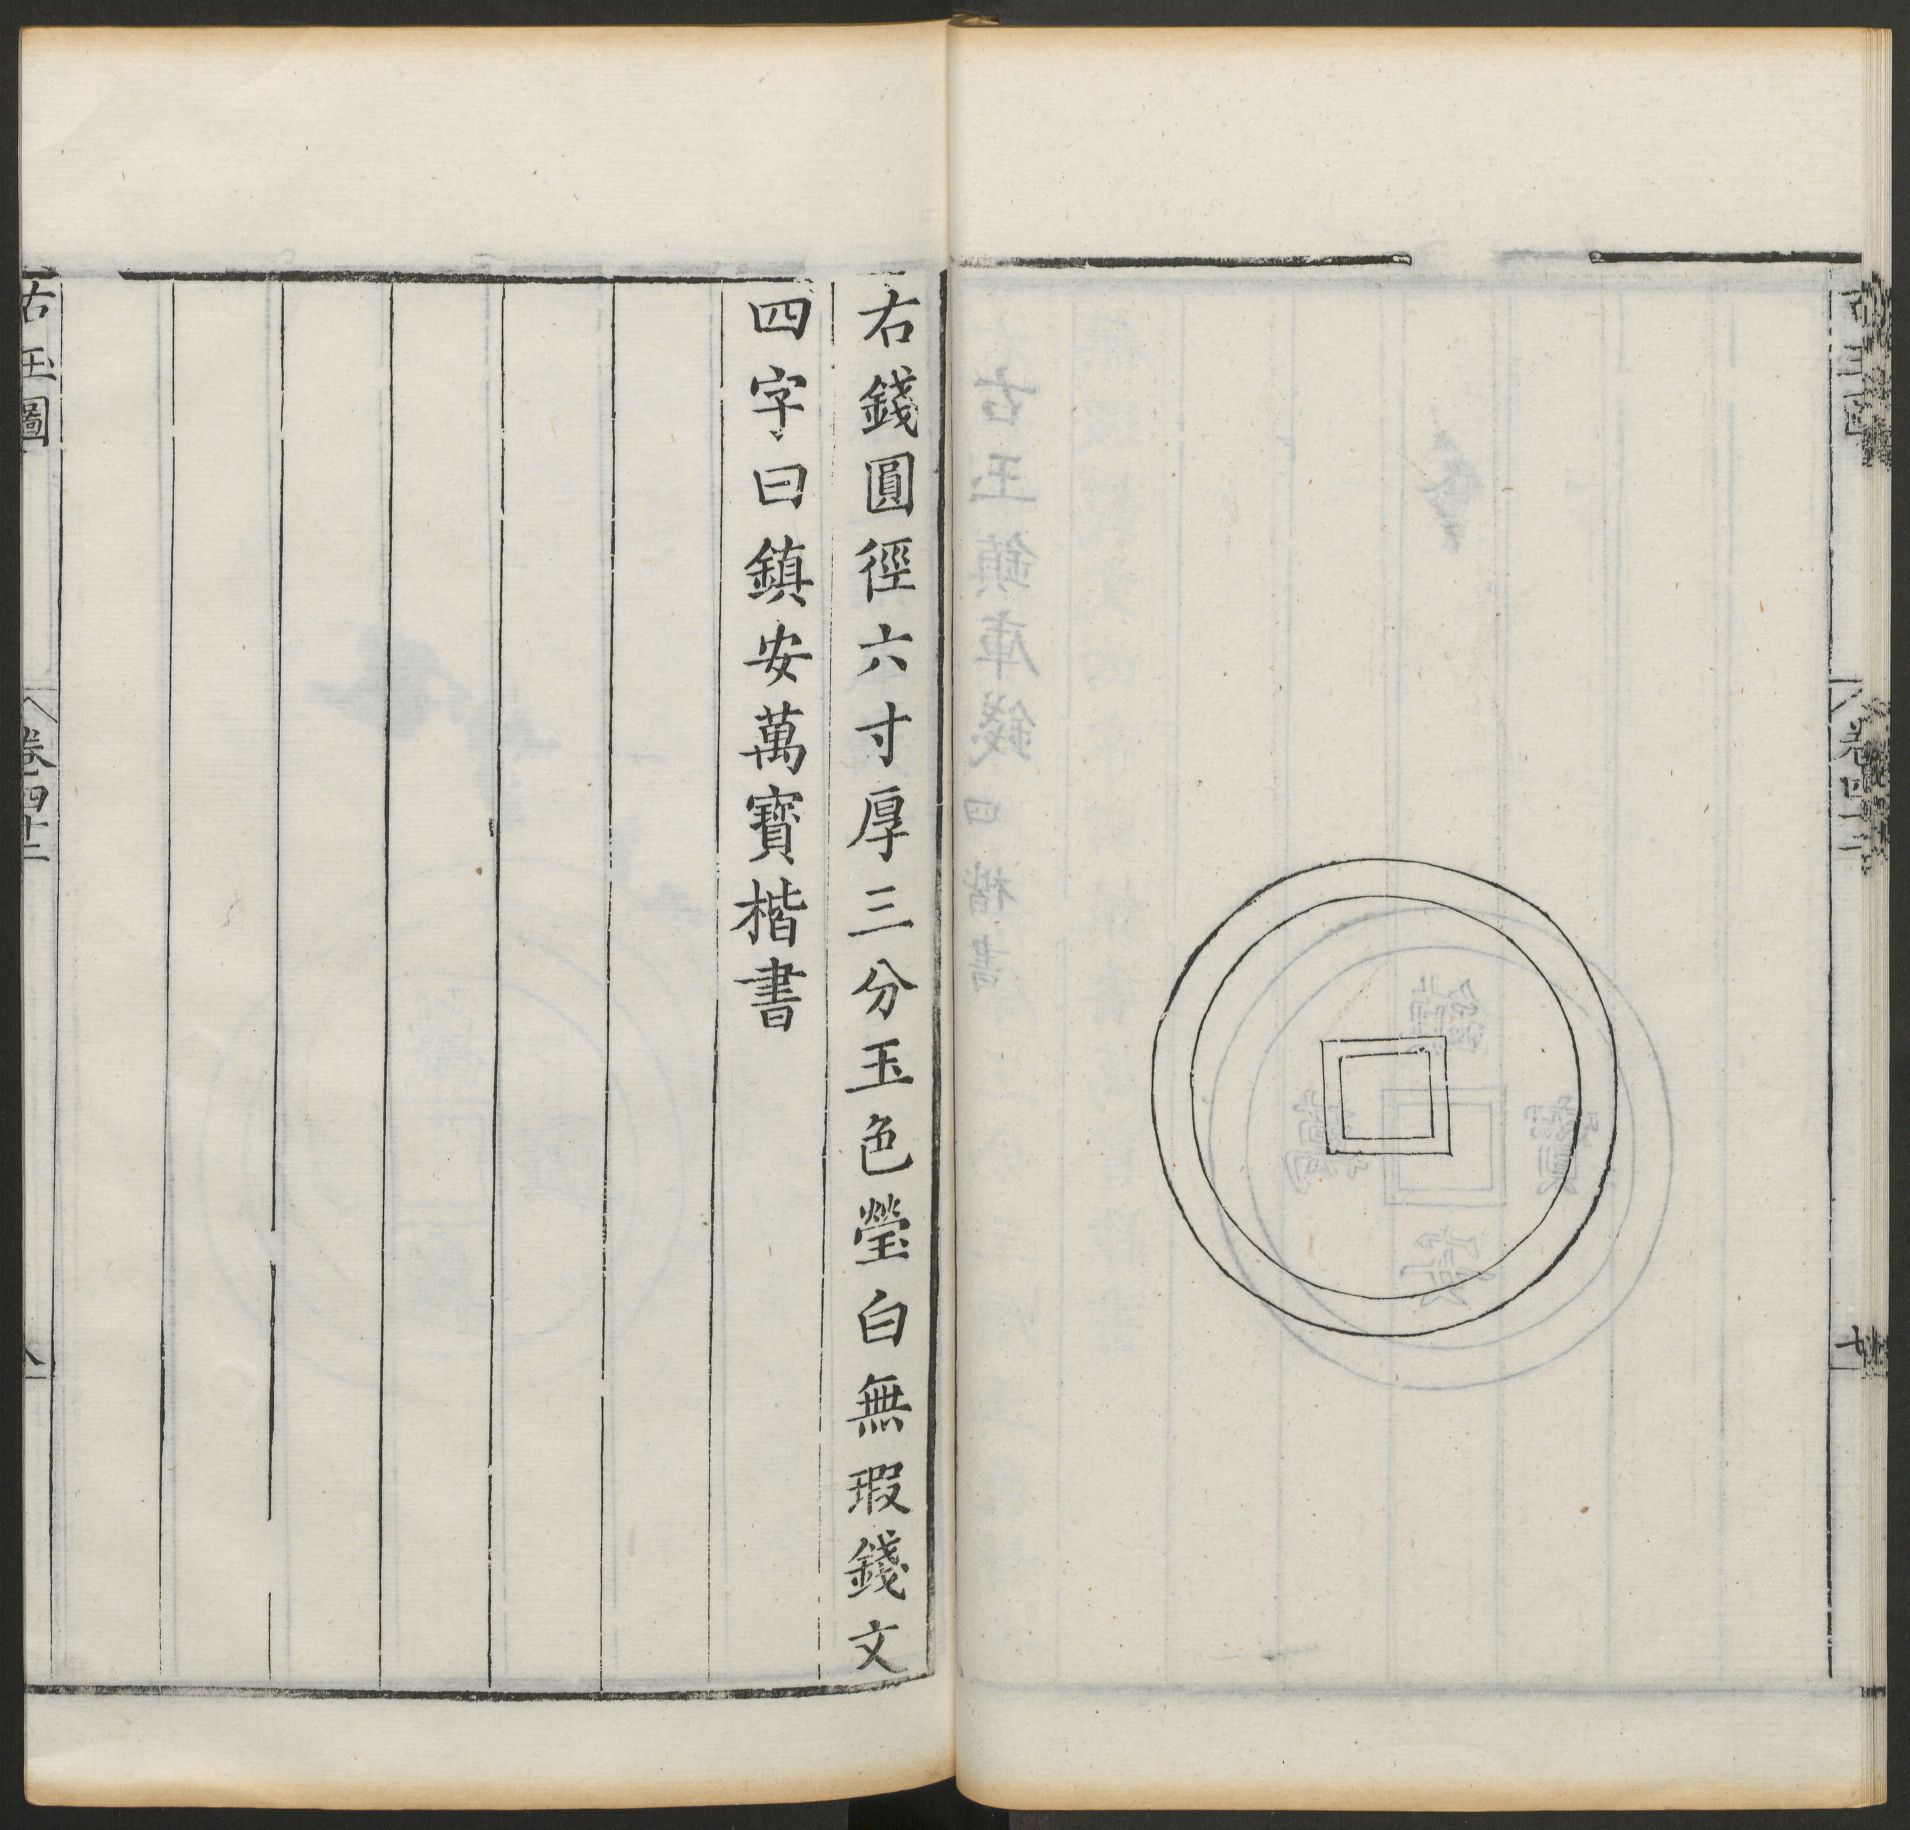 右錢圓徑六寸厚三分玉色瑩白無瑕錢文
四字曰鎮安萬寶楷書
古玉圖
卷四十二
八